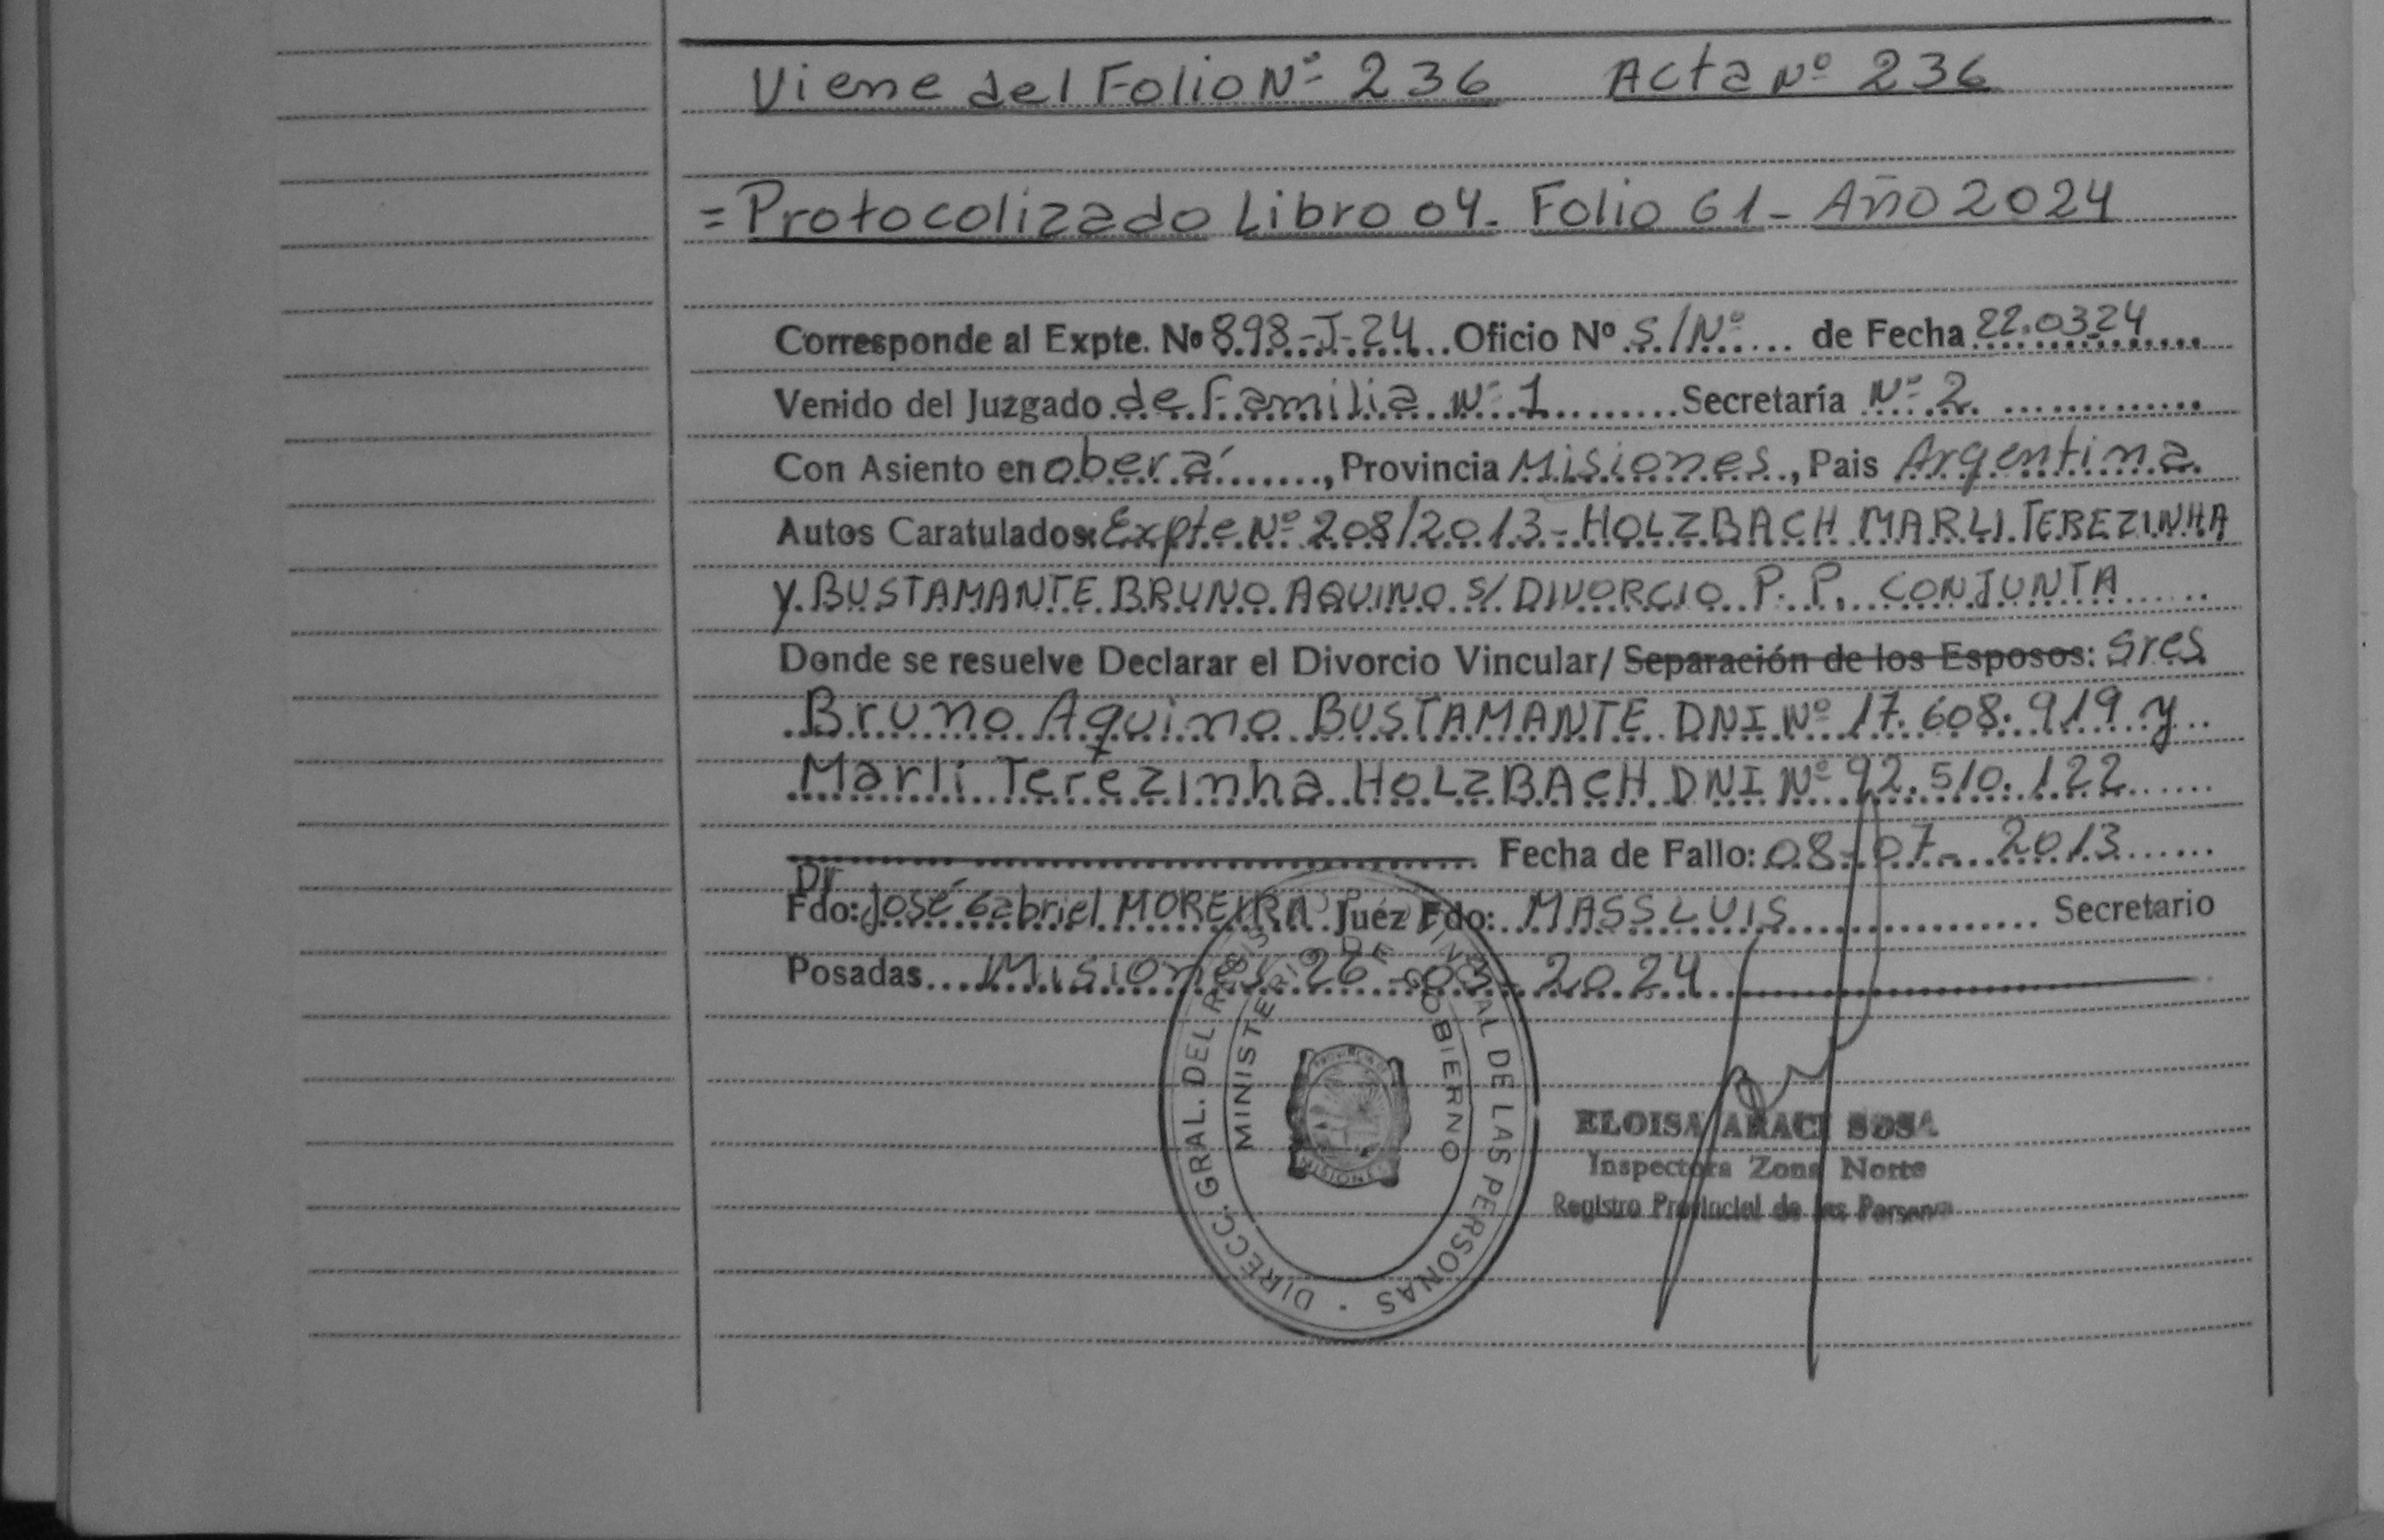 Viene del Folio Nº 236 Acta Nº 236
= Protocolizado Libro 04- Folio 61- Año 2024
Corresponde al Expte. Nº 898-J-24 Oficio Nº S/Nº de Fecha 22.03.24
Venido del Juzgado de Familia Nº 1 Secretaría Nº 2
Con Asiento en oberá, Provincia Misiones, Pais Argentina
Autos Caratulados: Expte Nº 208/2013- HOLZBACH MARLI TEREZINHA
y BUSTAMANTE BRUNO AQUINO S/ DIVORCIO P. P. CONJUNTA
Donde se resuelve Declarar el Divorcio Vincular/ Separación de los Esposos: Sres
Bruno Aquino BUSTAMANTE DNI Nº 17.608.919 y
Marli Terezinha HOLZBACH DNI Nº 92.510.122
Fecha de Fallo: 08-07-2013
Dr
Fdo: José Gabriel MOREIRA Juéz Fdo: MASS LUIS Secretario
Posadas Misiones 26-03-2024
DIRECC. GRAL. DEL REGIS PROVINCIAL DE LAS PERSONAS
MINISTERIO DE GOBIERNO
ELOISA ARACI SOSA
Inspectora Zona Norte
Registro Provincial de las Personas